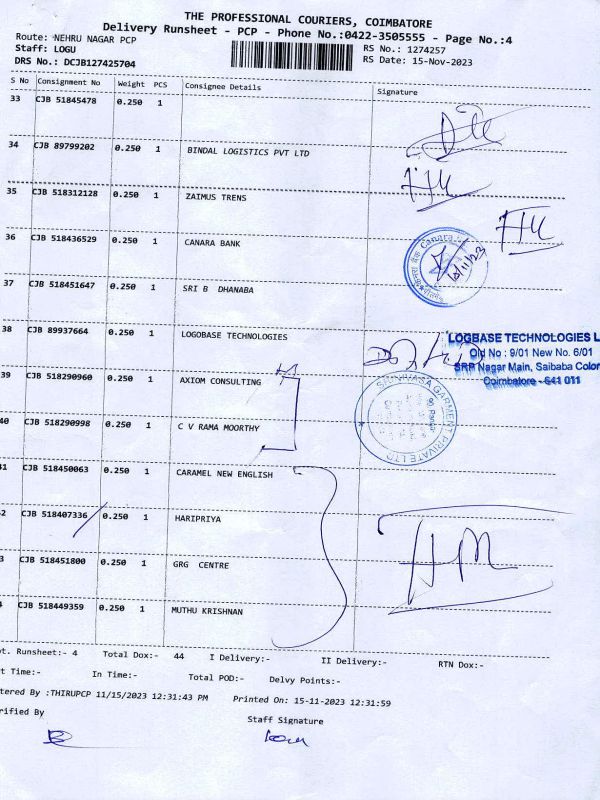 THE PROFESSIONAL COURIERS, COIMBATORE
Delivery Runsheet - PCP - Phone No.:0422-3505555 - Page No.:4
Route: NEHRU NAGAR PCP
RS No.: 1274257
Staff: LOGU
RS Date: 15-Nov-2023
DRS No.: DCJB127425704
S No Consignment No Weight PCS Consignee Details Signature
33 CJB 51845478 0.250 1
34 CJB 89799202 0.250 1 BINDAL LOGISTICS PVT LTD
35 CJB 518312128 0.250 1 ZAIMUS TRENS
36 CJB 518436529 0.250 1 CANARA BANK
Canara
37 CJB 518451647 0.250 1 SRI B DHANABA
38 CJB 89937664 0.250 1 LOGOBASE TECHNOLOGIES
LOGBASE TECHNOLOGIES L
Old No : 9/01 New No. 6/01
SRP Nagar Main, Saibaba Color
Coimbatore - 641 011
39 CJB 518290960 0.250 1 AXIOM CONSULTING
SRINIVASA GARMENT PRIVATE LTD
40 CJB 518290998 0.250 1 C V RAMA MOORTHY
41 CJB 518450063 0.250 1 CARAMEL NEW ENGLISH
2 CJB 518407336 0.250 1 HARIPRIYA
3 CJB 518451800 0.250 1 GRG CENTRE
CJB 518449359 0.250 1 MUTHU KRISHNAN
t. Runsheet:- 4 Total Dox:- 44 I Delivery:- II Delivery:- RTN Dox:-
t Time:- In Time:- Total POD:- Delvy Points:-
tered By :THIRUPCP 11/15/2023 12:31:43 PM Printed On: 15-11-2023 12:31:59
rified By Staff Signature